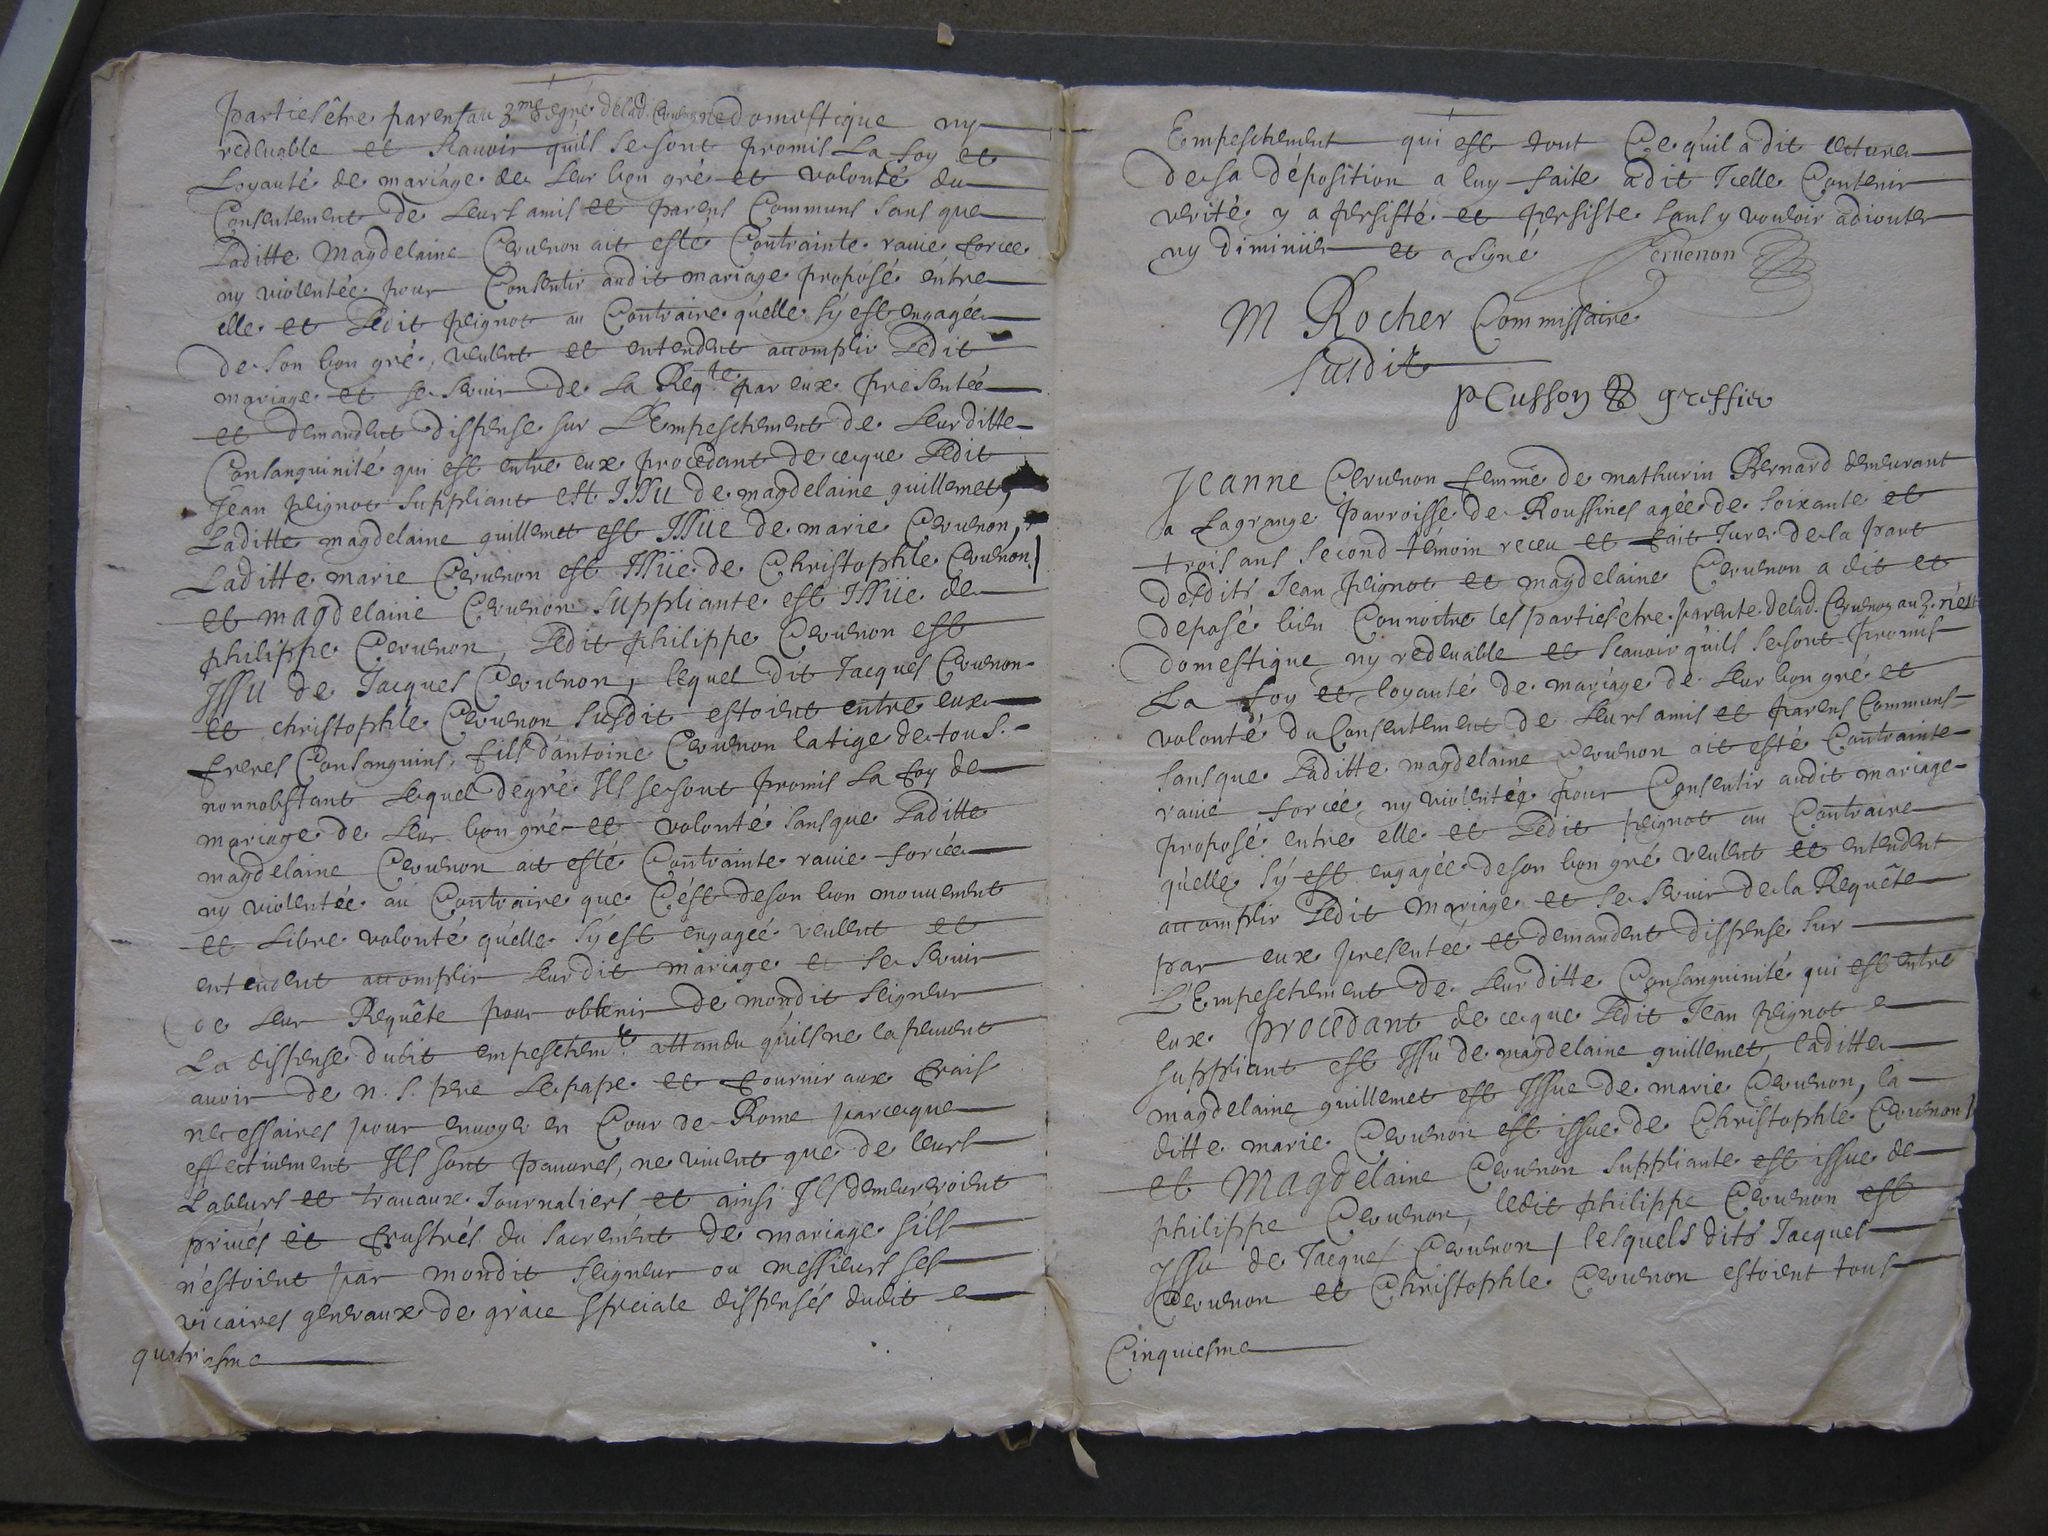 parties être parens au 3.me degré de lad. Cervenon ne domestique ny
redevable et scavoir qu'ils se sont promis La foy et
Loyauté de mariage de Leur bon gré et volonté du
Consentement de Leurs amis et parens Communs sans que
Laditte Magdelaine Cervenon ait esté Contrainte ravie forcée
ny violentée pour Consentir audit mariage proposé entre
elle et Ledit peignot au Contraire qu'elle s'y est engagée
de son bon gré, veulent et entendent accomplir Ledit
mariage et se servir de La Req.te par eux presentée
et demandent dispense sur L'Empeschement de Leur ditte
Consanguinité qui est entre eux procedant de ce que Ledit
Jean peignot suppliant est Issu de magdelaine guillemet,
Laditte magdelaine guillemet est Issüe de marie Cervenon,
Laditte marie Cervenon est Issüe de Christophle Cervenon,
et magdelaine Cervenon suppliante est Issüe de
philippe Cervenon, Ledit philippe Cervenon est
Issu de Jacques Cervenon, lequel dit Jacques Cervenon
et christophle Cervenon susdit estoient entre eux
freres Consanguins, fils d'antoine Cervenon la tige de tous.
nonnobstant Lequel degré Ils se sont promis La foy de
mariage de Leur bon gré et volonté sans que Laditte
magdelaine Cervenon ait esté Contrainte ravie forcée
ny violentée au Contraire que C'est de son bon mouvement
et Libre volonté qu'elle s'y est engagée veulent et
entendent accomplir Leur dit mariage et se servir
de Leur Requête pour obtenir de mondit seigneur
La dispense dudit empeschem.t attandu qu'ils ne la peuvent
avoir de n. s. pere Le pape et fournir aux frais
necessaires pour envoyer en Cour de Rome parceque
effectivement Ils sont pauvres, ne vivent que de leurs
Labeurs et travaux Journaliers et ainsi Ils demeureroient
privés et frustrés du sacrement de mariage s'ils
n'estoient par mondit seigneur ou messieurs ses
vicaires generaux de grace speciale dispensés dudit
quatriesme
Empeschement qui est tout Ce qu'il a dit lecture
de sa déposition a luy faite a dit Icelle Contenir
verité y a persisté et persiste sans y vouloir adiouter
ny diminüer et a signé Cervenon
M Rocher Commissaire
susdit
P Cusson greffier
Jeanne Cervenon femme de mathurin Bernard demeurant
a Lagrange parroisse de Roussines agée de soixante et
trois ans second témoin receu et fait Jurer de la part
desdits Jean peignot et magdelaine Cervenon a dit et
deposé bien Connoitre les parties être parente de lad. Cervenon au 3.
domestique ny redevable et scavoir qu'ils se sont promis
La foy et loyauté de mariage de Leur bon gré et
volonté du Consentement de Leurs amis et parens Communs
sans que Laditte magdelaine Cervenon ait esté Contrainte
ravie forcée ny violentée pour Consentir audit mariage
proposé entre elle et Ledit peignot au Contraire
qu'elle s'y est engagée de son bon gré veulent et entendent
accomplir Ledit mariage et se servir de la Requête
par eux presentée et demandent dispense sur
L'Empeschement de Leur ditte Consanguinité qui est entre
eux procedant de ce que Ledit Jean peignot
suppliant est Issu de magdelaine guillemet, laditte
magdelaine guillemet est Issue de marie Cervenon, la
ditte marie Cervenon est issue de Christophle Cervenon
et Magdelaine Cervenon suppliante est issue de
philippe Cervenon, ledit philippe Cervenon est
Issu de Jacques Cervenon, lesquels dits Jacques
Cervenon et Christophle Cervenon estoient tous
Cinquiesme